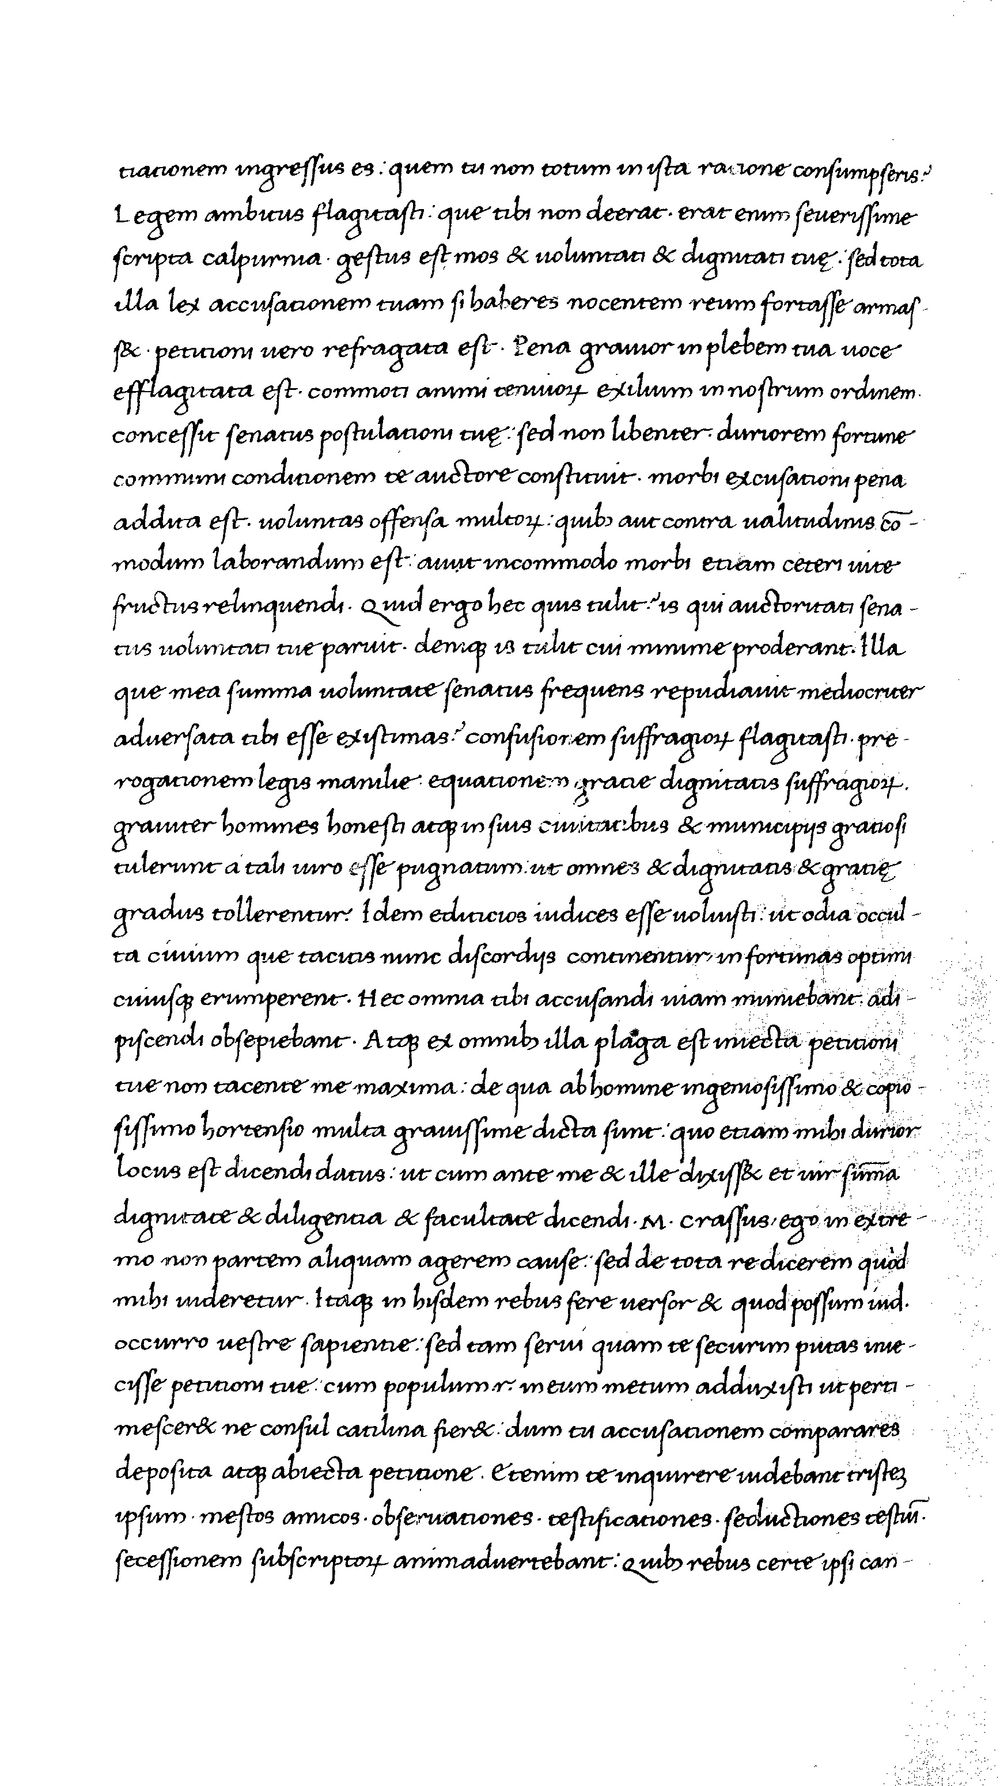 tiationem ingressus es: quem tu non totum in ista ratione consumpseris?
Legem ambitus flagitasti: que tibi non deerat. erat enim severissime
scripta calpurnia. gestus est mos & voluntati & dignitati tuę: sed tota
illa lex accusationem tuam si haberes nocentem reum fortasse armas-
s&. petitioni vero refragata est. Pena gravior in plebem tua voce
efflagitata est. commoti animi tenuioꝝ exilium in nostrum ordinem.
concessit senatus postulationi tuę: sed non libenter. duriorem fortune
communi conditionem te auctore constituit. morbi excusationi pena
addita est. voluntas offensa multoꝝ: quibꝫ aut contra valitudinis cō-
modum laborandum est: aut incommodo morbi etiam ceteri vite
fructus relinquendi. Quid ergo hec quis tulit? is qui auctoritati sena-
tus voluntati tue paruit. deniqꝫ is tulit cui minime proderant. Illa
que mea summa voluntate senatus frequens repudiavit mediocriter
adversata tibi esse existimas? confusionem suffragioꝝ flagitasti. pre-
rogationem legis manilie: equationem gratie dignitatis suffragioꝝ.
graviter homines honesti atqꝫ in suis civitatibus & municipijs gratiosi
tulerunt a tali viro esse pugnatum: ut omnes & dignitatis & gratię
gradus tollerentur? Idem editicios iudices esse voluisti: ut odia occul-
ta civium que tacitis nunc discordijs continentur, in fortunas optimi
cuiusqꝫ erumperent. Hec omnia tibi accusandi viam muniebant. adi-
piscendi obsepiebant. Atqꝫ ex omnibꝫ illa plaga est iniecta petitioni
tue non tacente me maxima: de qua ab homine ingeniosissimo & copio-
sissimo hortensio multa gravissime dicta sunt: quo etiam mihi durior
locus est dicendi datus: ut cum ante me & ille dixiss& et vir sum̄a
dignitate & diligentia & facultate dicendi. M. Crassus, ego in extre-
mo non partem aliquam agerem cause: sed de tota re dicerem quod
mihi videretur. Itaqꝫ in hisdem rebus fere versor & quod possum iud.
occurro vestre sapientie: sed tam servi quam te securim putas inie-
cisse petitioni tue: cum populum.r. in eum metum adduxisti ut perti-
mescer& ne consul catilina fier&: dum tu accusationem comparares
deposita atqꝫ abiecta petitione. Etenim te inquirere videbant tristeꝫ
ipsum. mestos amicos. observationes. testificationes. seductiones testiū.
secessionem subscriptoꝝ animadvertebant: Quibꝫ rebus certe ipsi can-